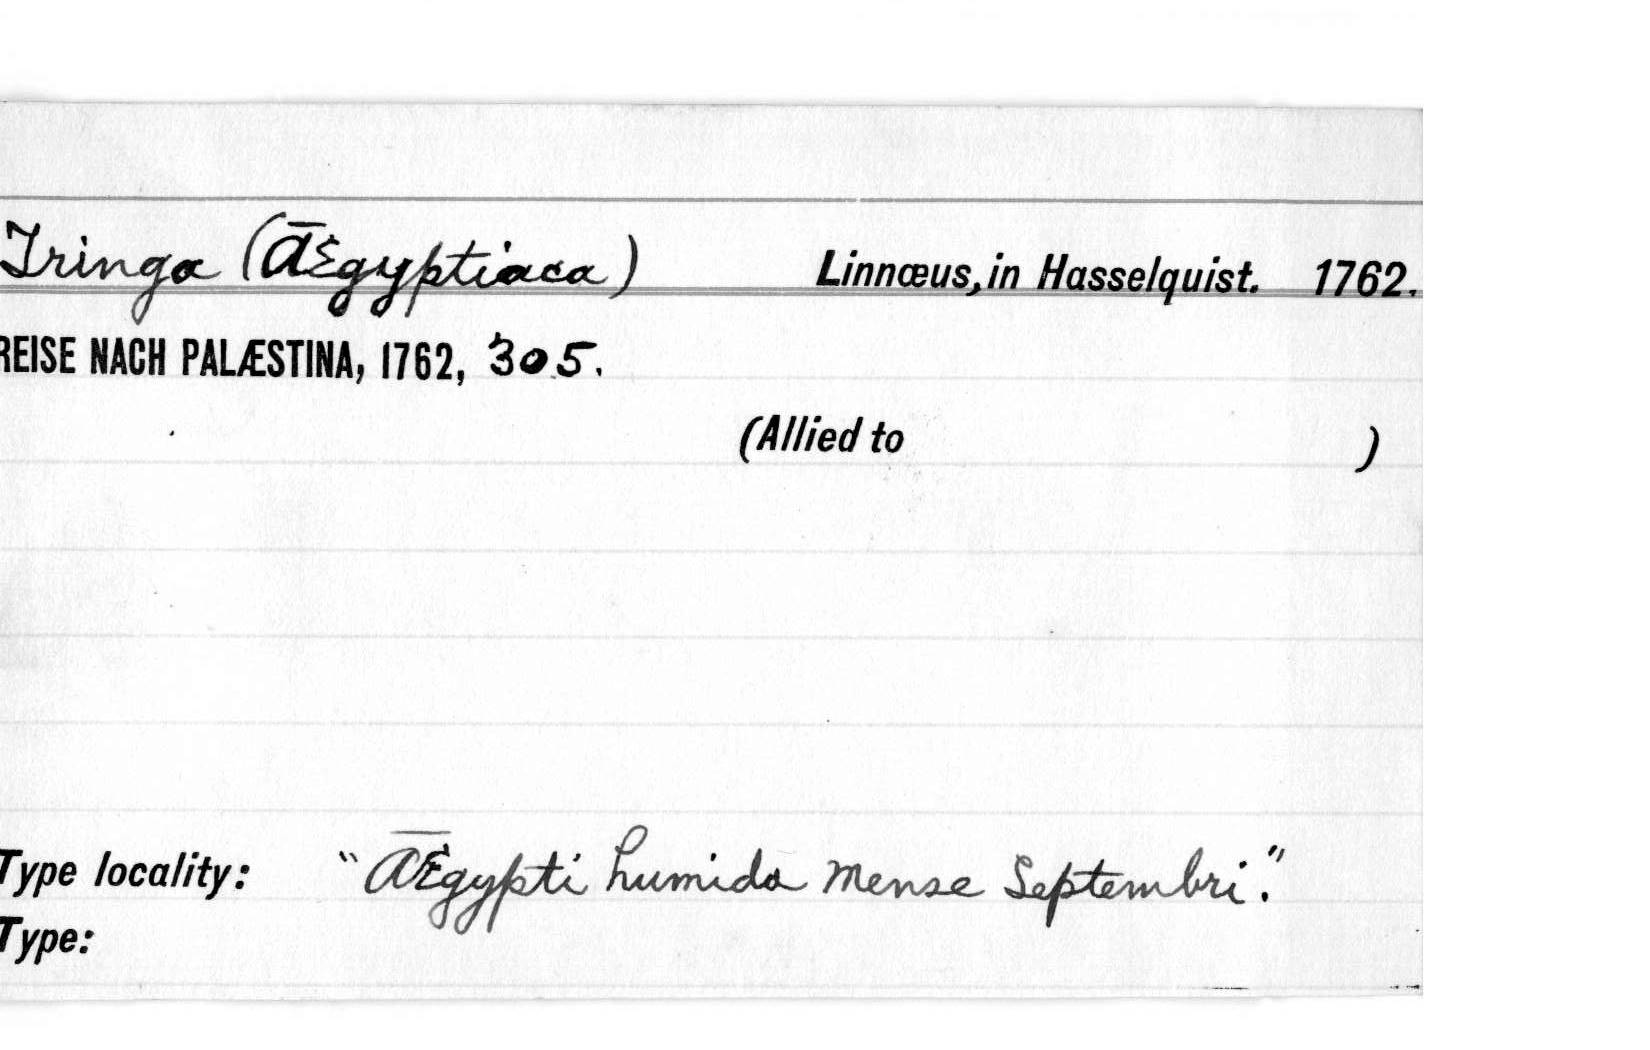 Tringa (Ægyptiaca) Linnœus, in Hasselquist. 1762.
REISE NACH PALÆSTINA, 1762, 305.
(Allied to )
Type locality: "Ægypti humida mense Septembri."
Type: